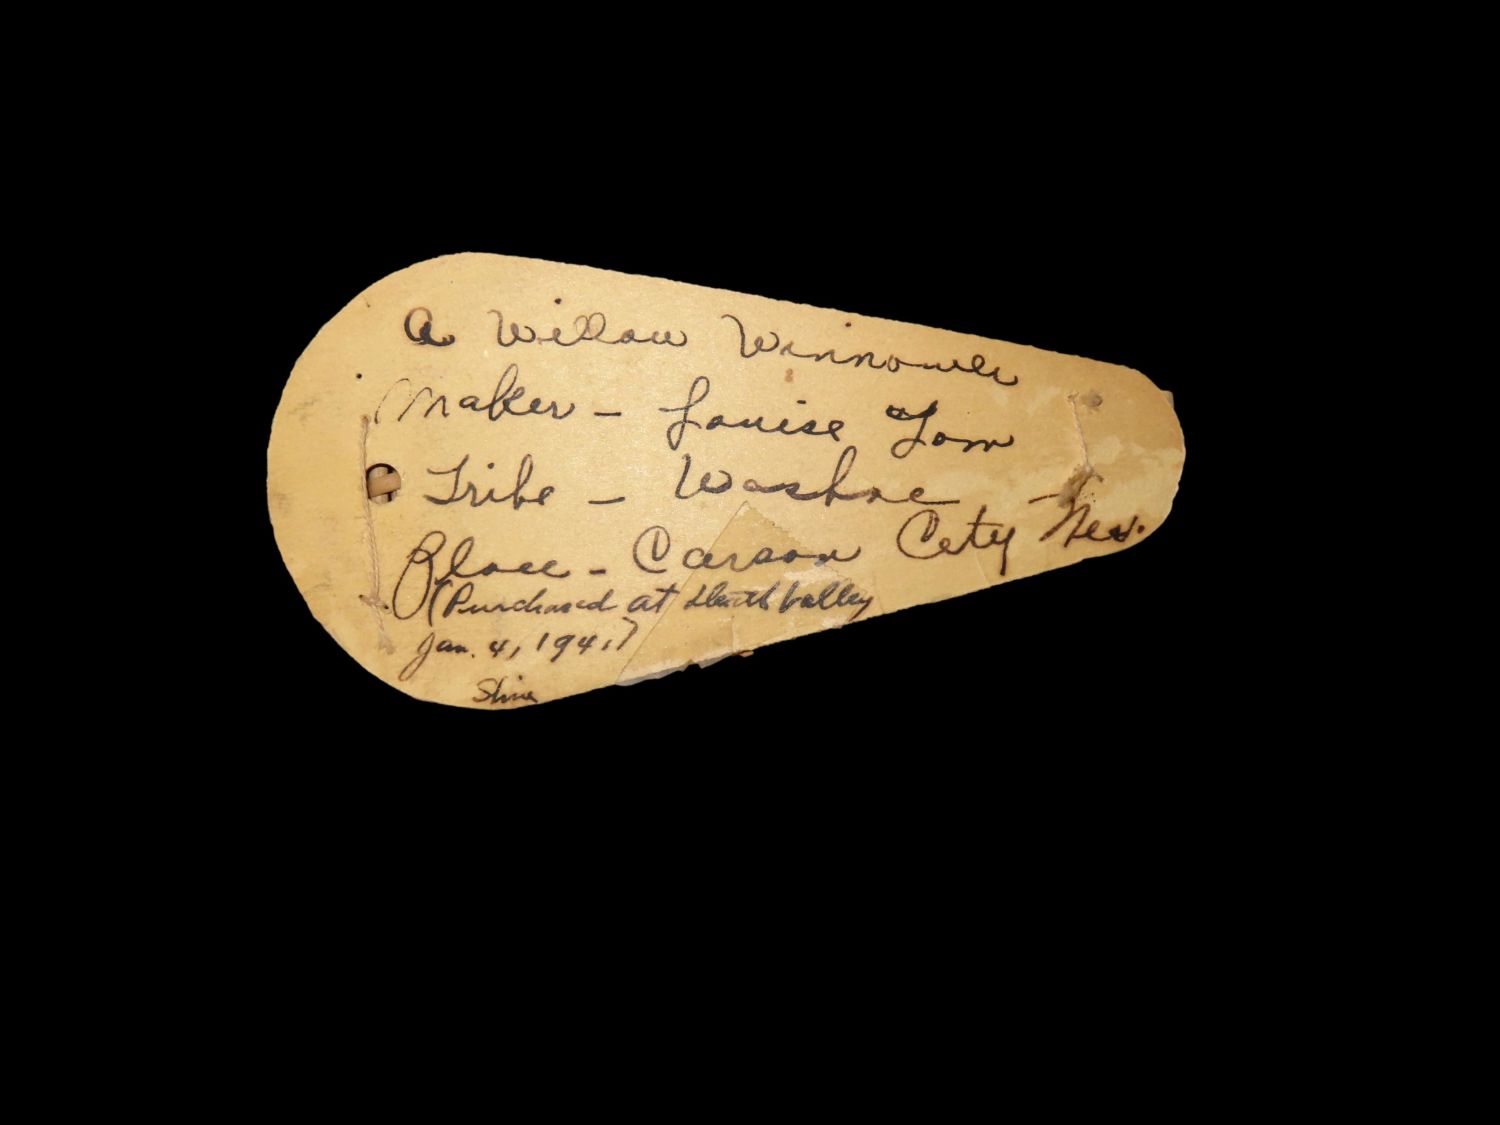 A Willow Winnower
Maker - Louise Tom
Tribe - Washoe
Place - Carson City Nev.
(Purchased at Death Valley
Jan. 4, 1941)